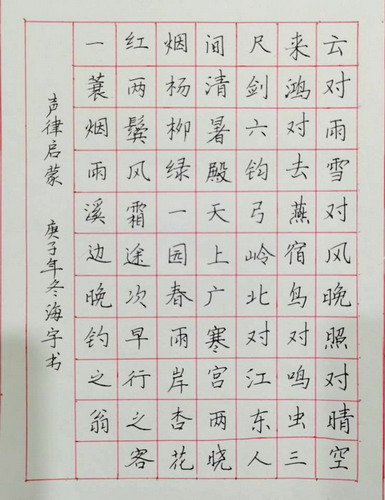 云对雨雪对风晚照对晴空
来鸿对去燕宿鸟对鸣虫三
尺剑六钧弓岭北对江东人
间清暑殿天上广寒宫两晓
烟杨柳绿一园春雨岸杏花
红两鬓风霜途次早行之客
一蓑烟雨溪边晚钓之翁
声律启蒙 庚子年冬海字书